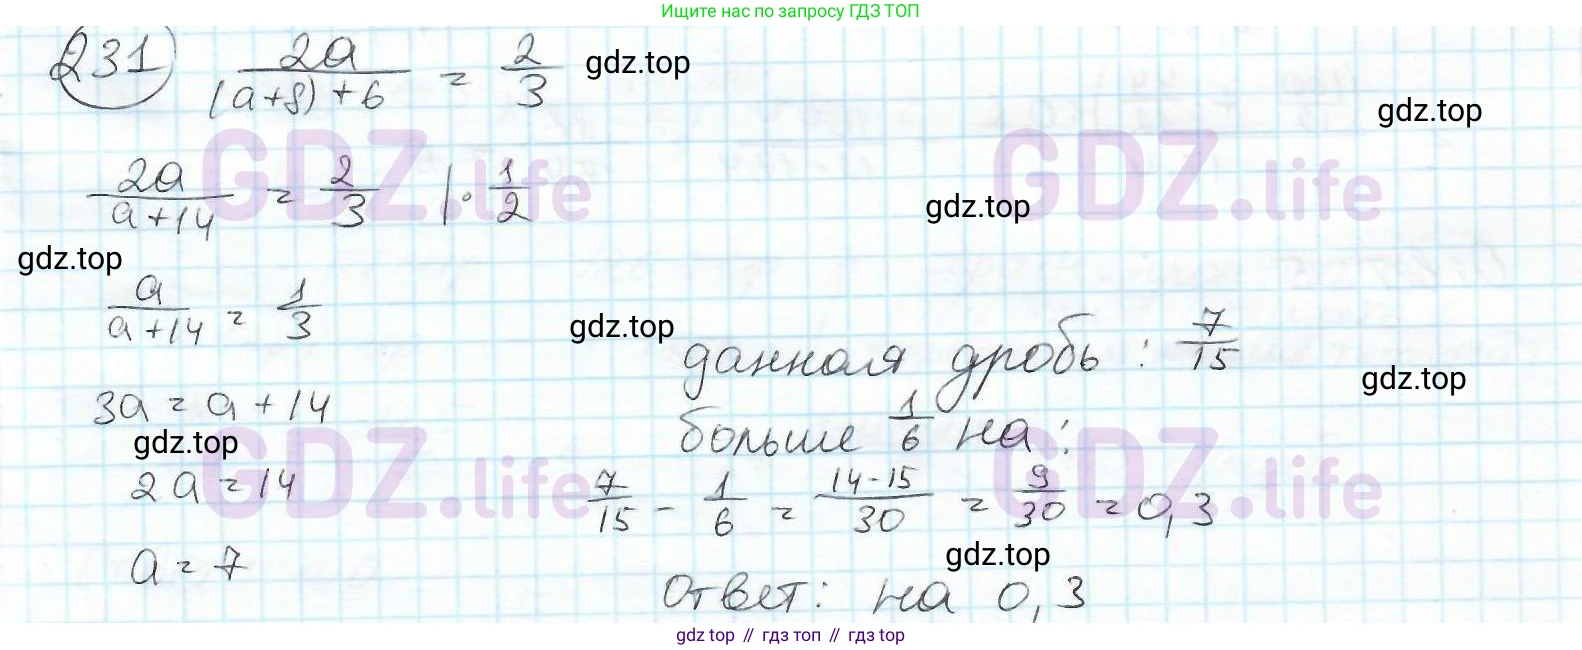 Ищите нас по запросу ГДЗ ТОП
231) 2a/((a+8)+6) = 2/3
gdz.top
gdz.top
GDZ.life
GDZ.life
2a/(a+14) = 2/3 | · 1/2
gdz.top
gdz.top
a/(a+14) = 1/3
gdz.top
данная дробь: 7/15
gdz.top
3a = a + 14
больше 1/6 на:
gdz.top
GDZ.life
GDZ.life
2a = 14
7/15 - 1/6 = (14-15)/30 = 9/30 = 0,3
gdz.top
a = 7
Ответ: на 0,3
gdz top // гдз топ // гдз top